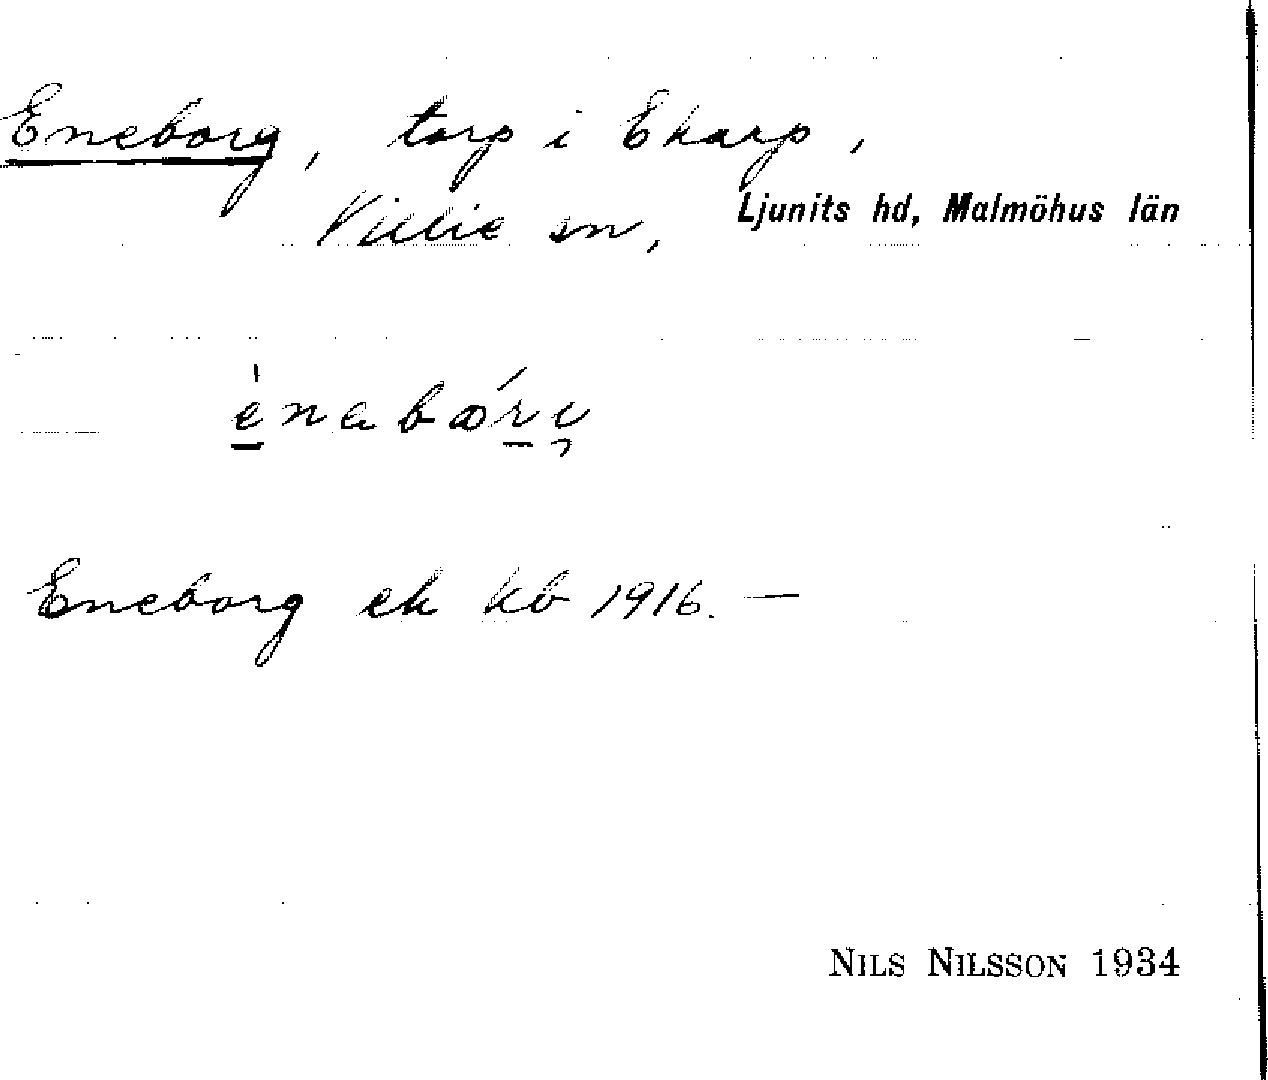 Eneborg, torp i Ekarp,
Villie sn, Ljunits hd, Malmöhus län
Eneborg ek kb 1916. —
NILS NILSSON 1934